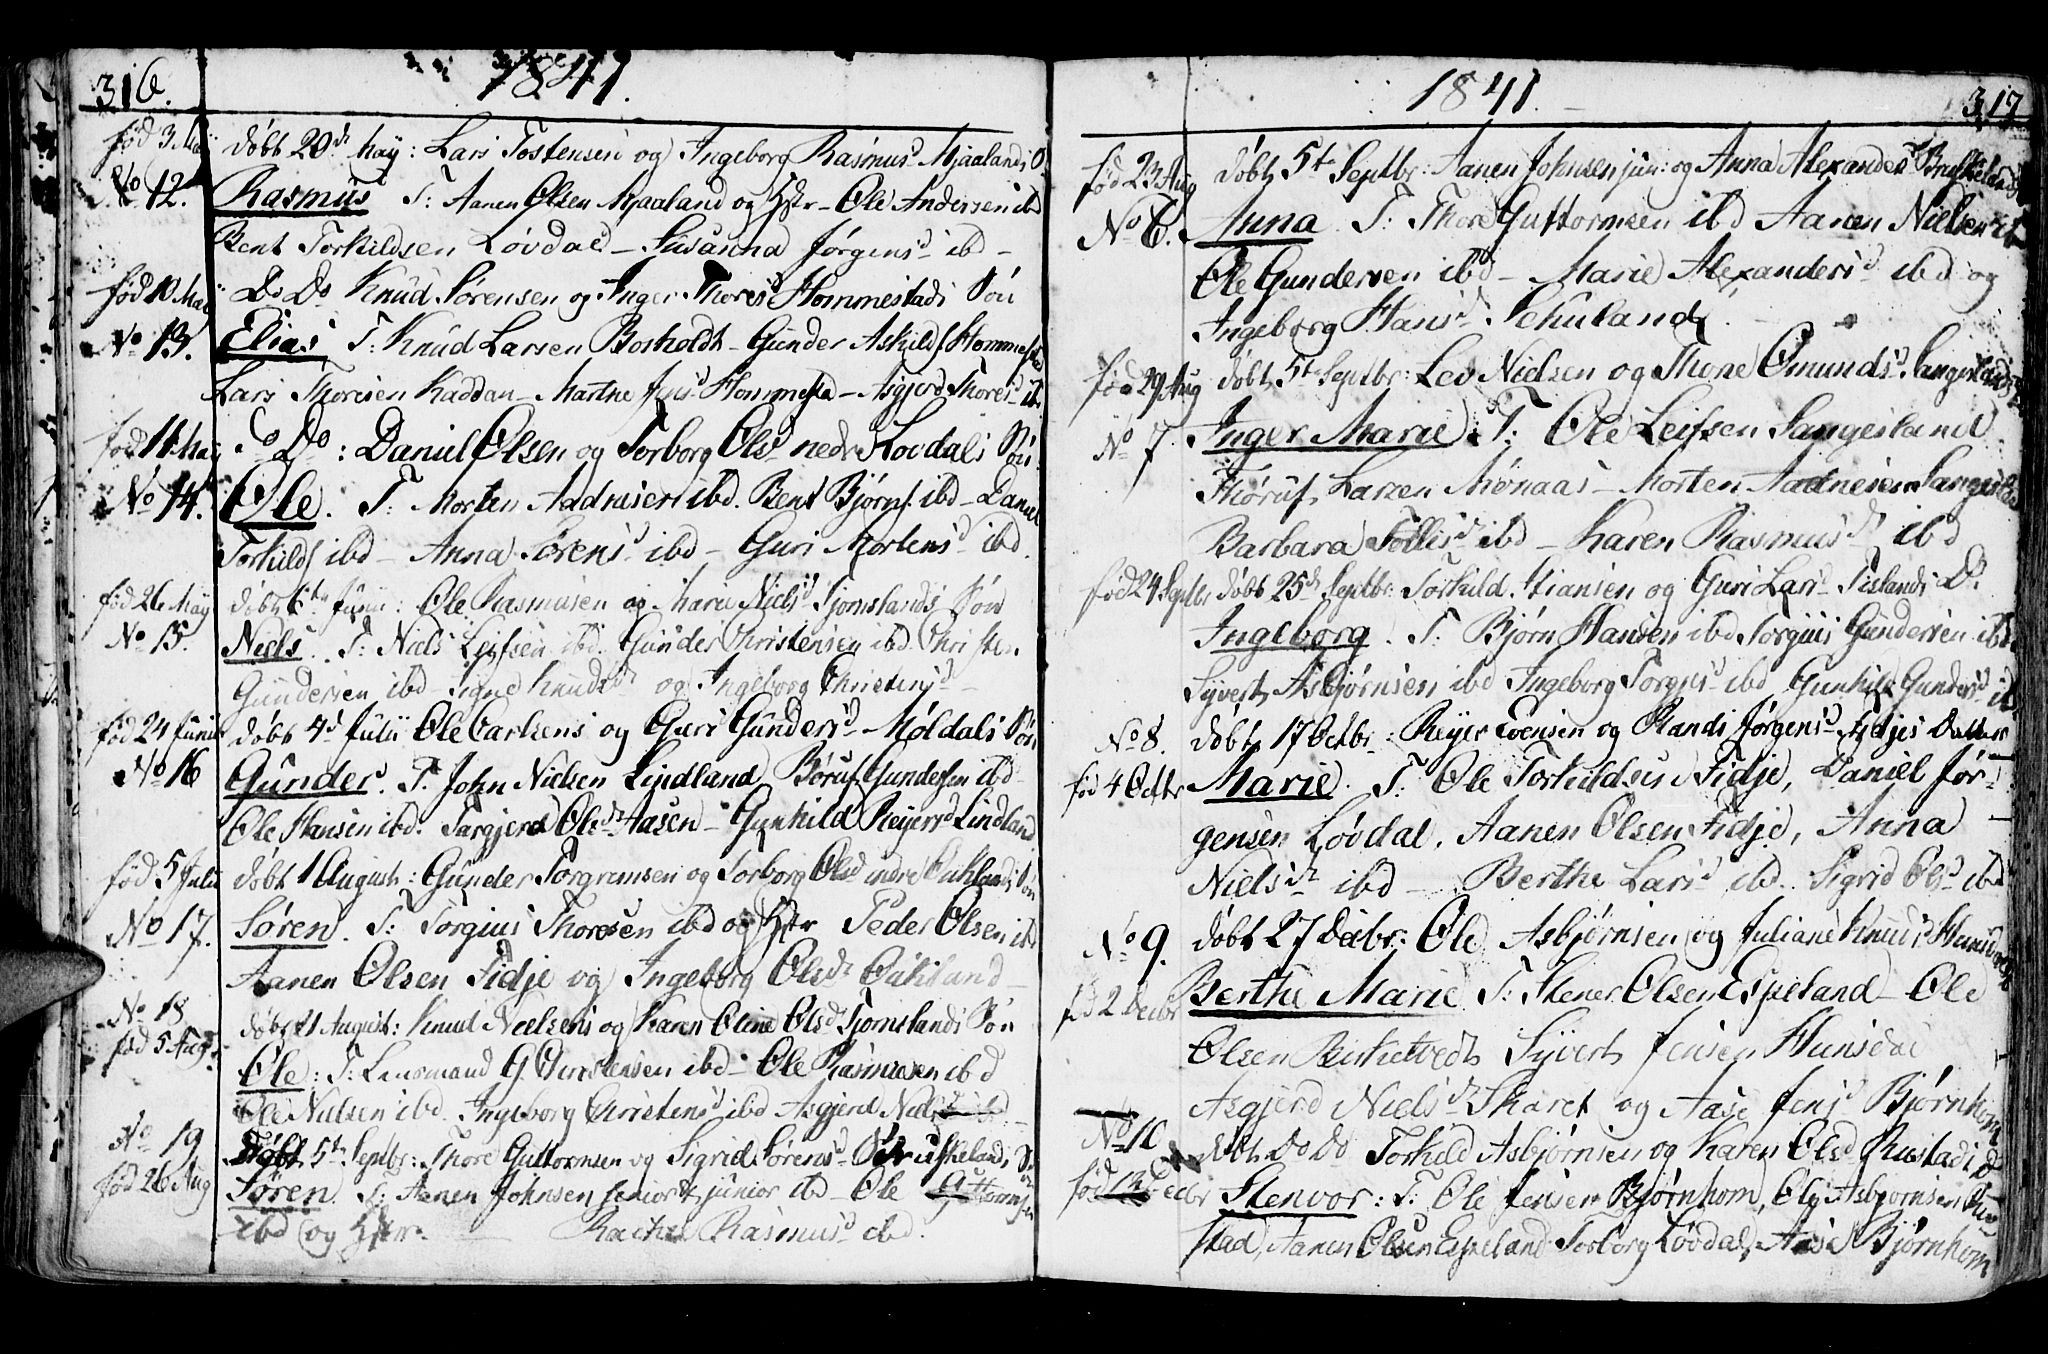 316.
1841.
fød 3 May døbt 20de May: Lars Tostensen og Ingeborg Rasmusd Mjaalands S.
No 12. Rasmus T: Aanen Olsen Mjaaland og Hstr – Ole Andersen ibd
Bent Torkildsen Løvdal – Susanna Jørgensd ibd –
fød 10 May Do Do Knud Sørensen og Inger Thoresd Hommestads Søn
No 13. Elias T: Knud Larsen Bosholdt – Gunder Askilds Hommestad
Lars Thoresen Kaddan – Marthe Jensd Hommestad – Asgjerd Thoresd ibd
fød 11 May Do Do: Daniel Olsen og Torborg Olsd nedr Løvdals Søn
No 14. Ole. T: Morten Aadnesen ibd. Bent Bjørns. ibd – Daniel
Torkilds ibd – Anna Sørensd ibd – Guri Mortensd ibd.
fød 26 May døbt 6te Junii: Ole Rasmusen og Marie Nielsd Tjomslands Søn
No 15. Niels. T: Niels Leifsen ibd. Gunder Christensen ibd. Christen
Gundersen ibd – Signe Knudsd og Ingeborg Christensd –
fød 24 Junii døbt 4de Julii Ole Carlsens og Guri Gundersd Moldals Søn
No 16 Gunder. T. John Nielsen Lindland, Børuf Gundersen ibd –
Ole Hansen ibd. Targjerd Olsd Aasen – Gunhild Reyersd Lindland
fød 5 Julii døbt 1 August: Gunder Torgrimsen og Torborg Olsd indre Øchlands Søn
No 17. Søren. T: Torgius Thoresen ibd og Hstr Peder Olsen ibd
Aanen Olsen Fidje og Ingeborg Olsdr Øchland –
No 18 døbt 21 August: Knud Nielsens og Karen Oline Olsd Tjomslands Søn
fød 5 Aug. Ole: T: Lensmand G. Christensen ibd – Ole Rasmusen ibd
Ole Nielsen ibd. Ingeborg Christensd ibd Asgjerd Nielsd ibd
No 19 Døbt 5te Septbr: Thore Guttormsen og Sigrid Sørensd Bruskelands Søn
fød 26 Aug Søren. T: Aanen Johnsen senior & junior ibd – Ole Guttormsen
ibd og Hstr. Rachel Rasmusd ibd.
1841.
317
fød 23 Aug døbt 5te Septbr: Aanen Johnsen jun: og Anna Alexandersd Bruskelands
No 6. Anna T: Thore Guttormsen ibd Aanen Nielsen ibd
Ole Gundersen ibd – Marie Alexandersd ibd og
Ingeborg Hansd Schuland.
fød 29 Aug døbt 5te Septbr: Lev Nielsen og Thone Omundsd Sangeslands
No 7 Inger Marie T: Ole Leifsen Sangesland
Thoruf Larsen Monaas – Morten Aadnesen Sangesland
Barbara Tollisd ibd – Karen Rasmusdr ibd
fød 24 Septbr døbt 25de Septbr: Torkild Hansen og Guri Larsd Tislands D.
Ingeborg. T. Bjørn Hansen ibd Torguis Gundersen ibd
Syvert Asbjørnsen ibd Ingeborg Torgisd ibd Gunhild Gundersd ibd
No 8. døbt 17 Octbr: Reyer Evensen og Randi Jørgensd Fidjes Datter
fød 4 Octbr Marie. T: Ole Torkildsen Fidje, Daniel Jør-
gensen Løvdal, Aanen Olsen Fidje, Anna
Nielsdr ibd – Berthe Larsd ibd. Sigrid Olsd ibd
No 9. døbt 27 Decbr: Ole Asbjørnsen og Juliane Knudsd Hunsdals
fød 2 Decbr Berthe Marie T: Stener Olsen Espeland – Ole
Olsen Birketvedt Syvert Jensen Hunsdal
Asgjerd Nielsdr Skaret og Aase Jensd Bjørnhom
No 10 døbt Do Do Torkild Asbjørnsen og Karen Olsd Rustads D
fød Decbr Stenvor: T: Ole Jensen Bjørnhom, Ole Asbjørnsen Ru-
stad, Aanen Olsen Espeland Torborg Løvdal, Aase Bjørnhom